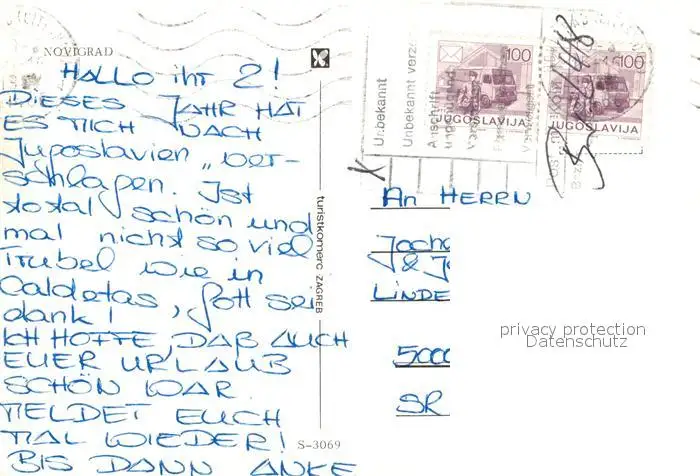 NOVIGRAD
HALLO ihr 2!
DIESES JAHR HAT
ES MICH NACH
Jugoslavien „ver-
schlagen. Ist
total schön und
mal nicht so viel
Trubel wie in
Caldetas, Gott sei
dank!
ICH HOFFE, DAß AUCH
EUER URLAUB
SCHÖN WAR.
MELDET EUCH
MAL WIEDER!
BIS DANN ANKE
turistkomerc ZAGREB
S-3069
Unbekannt
Unbekannt verz
Anschrift
100
JUGOSLAVIJA
100
JUGOSLAVIJA
An HERRN
Joch
& J
LINDE
5000
SR
privacy protection
Datenschutz